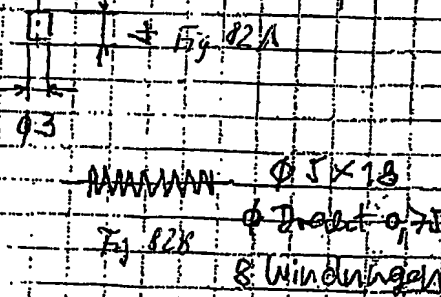 4 Fig 82A
φ3
φ 5 × 18
φ Draht 0,75
Fig 82B
8 Windungen